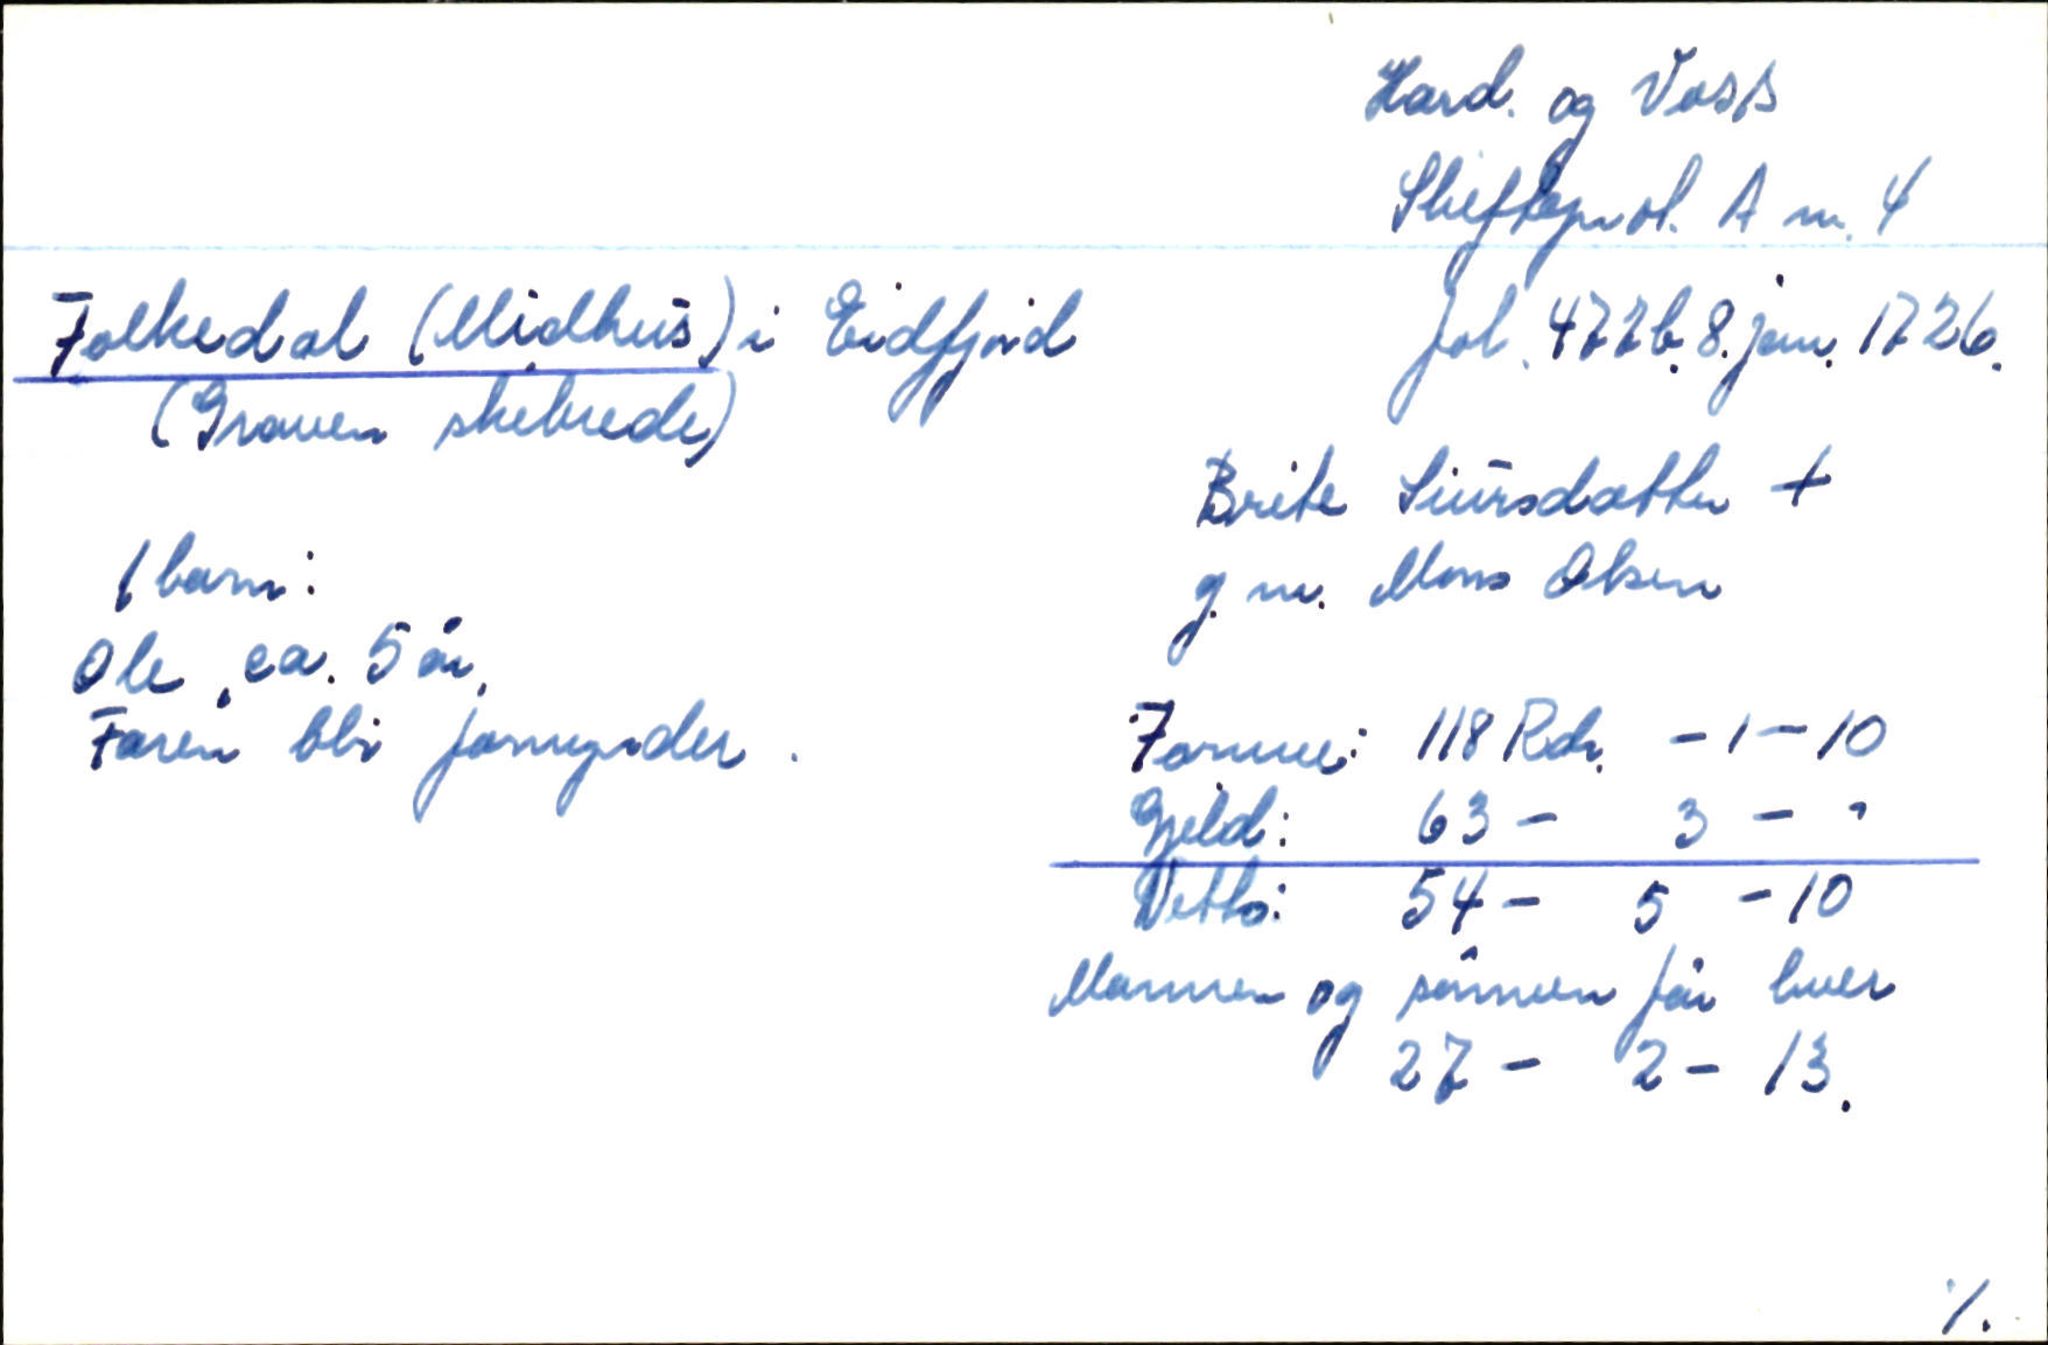 Hard. og Voss
Skifteprot. A nr. 4
Folkedal (Midhus) i Eidfjord
fol. 477b. 8. jan. 1726.
(Graven skibrede)
Brite Siursdatter +
g. m. Mons Olsen
1 barn:
Ole, ca. 5 år.
Faren blir formynder.
Formue: 118 Rdr. - 1 - 10
Gjeld: 63 - 3 - "
Netto: 54 - 5 - 10
Mannen og sønnen får hver
27 - 2 - 13.
./.